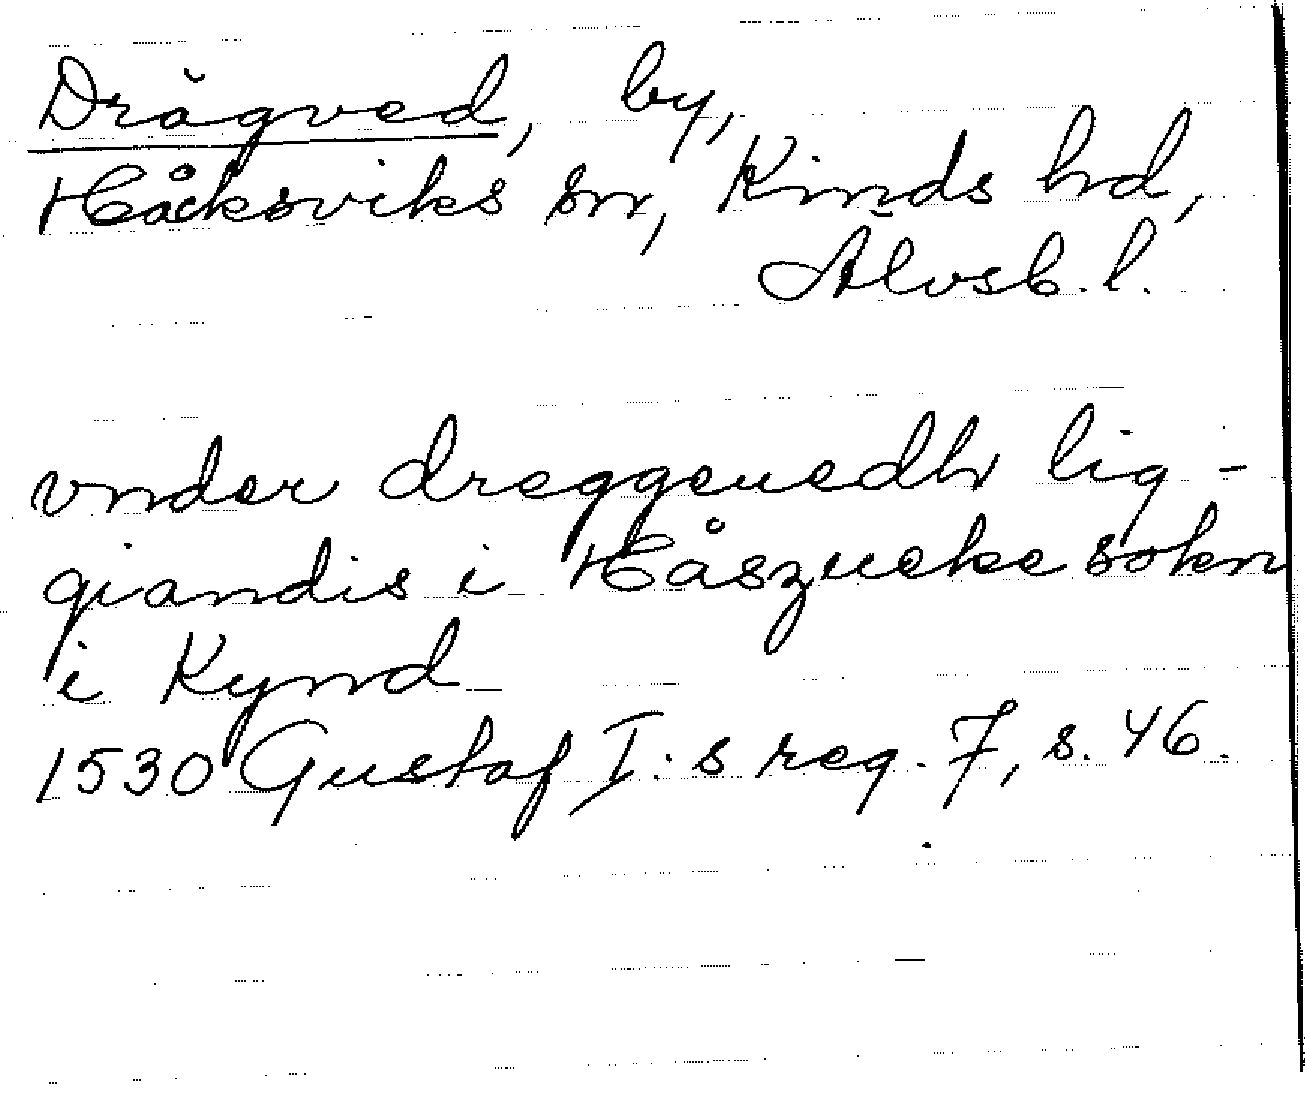 Drågved, by,
Håcksviks sn, Kinds hd,
Älvsb. l.
vnder dreggeuedh lig-
giandis i Håszueke sokn
i Kynd
1530 Gustaf I:s reg. 7, s. 46.